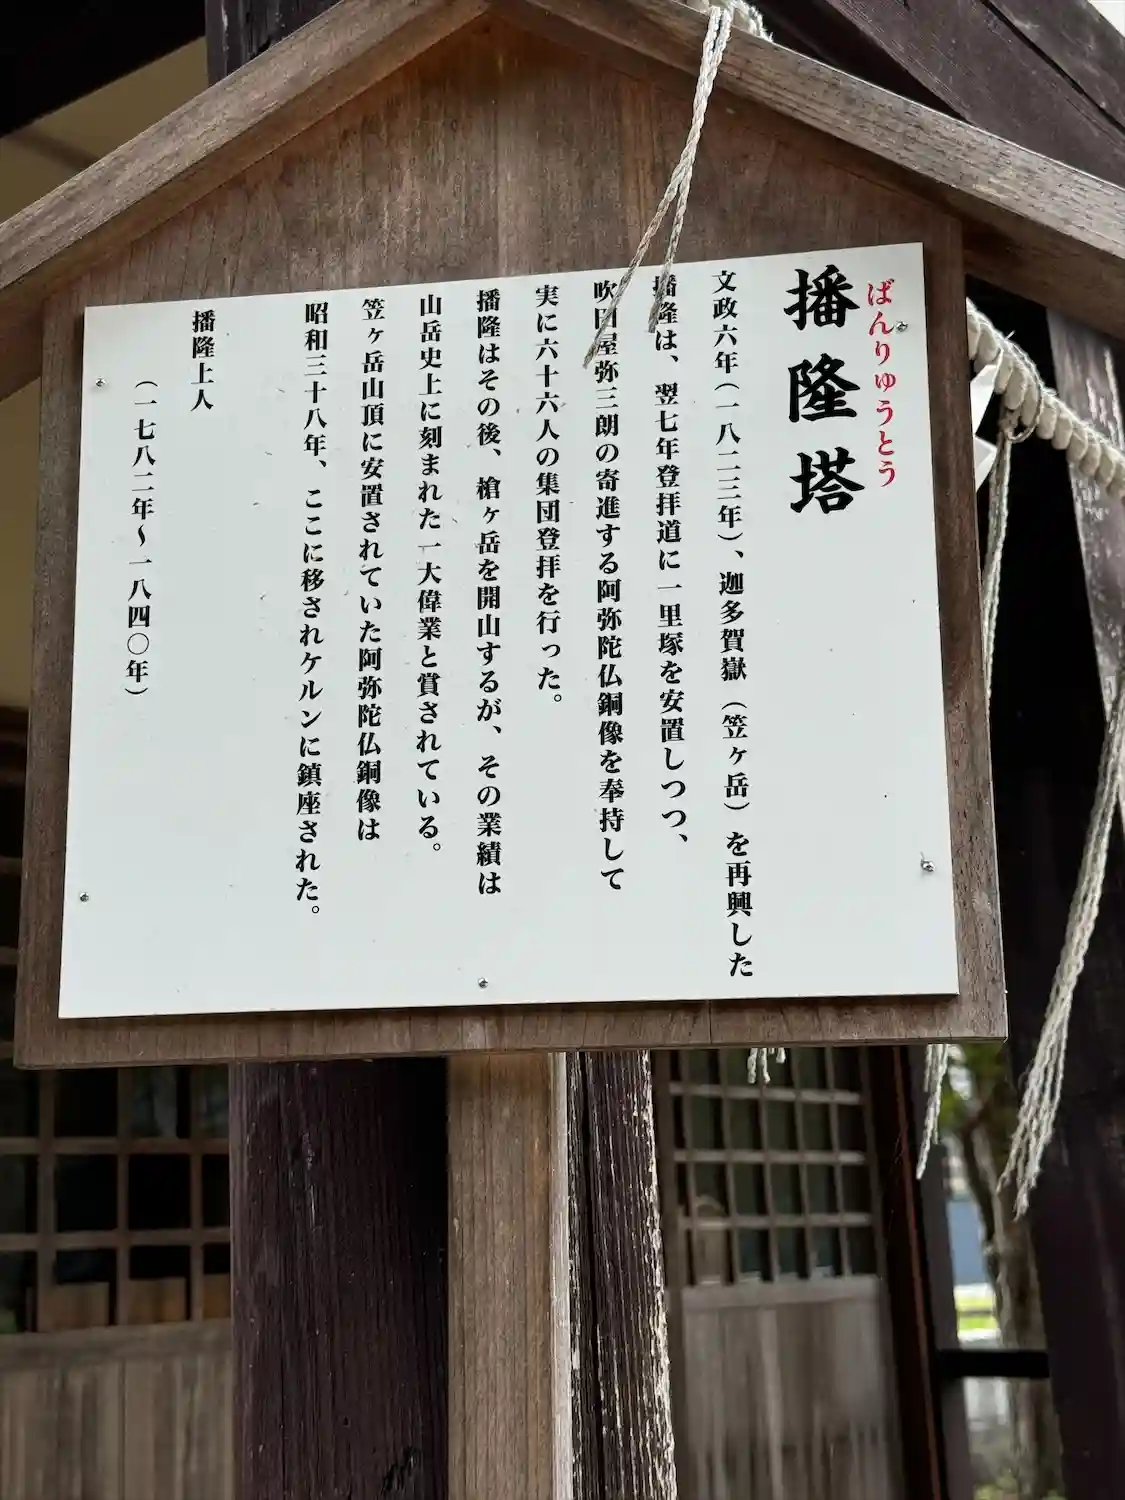 ばんりゅうとう
播隆塔
文政六年(一八二三年)、迦多賀嶽(笠ヶ岳)を再興した
播隆は、翌七年登拝道に一里塚を安置しつつ、
吹田屋弥三朗の寄進する阿弥陀仏銅像を奉持して
実に六十六人の集団登拝を行った。
播隆はその後、槍ヶ岳を開山するが、その業績は
山岳史上に刻まれた一大偉業と賞されている。
笠ヶ岳山頂に安置されていた阿弥陀仏銅像は
昭和三十八年、ここに移されケルンに鎮座された。
播隆上人
(一七八二年〜一八四〇年)